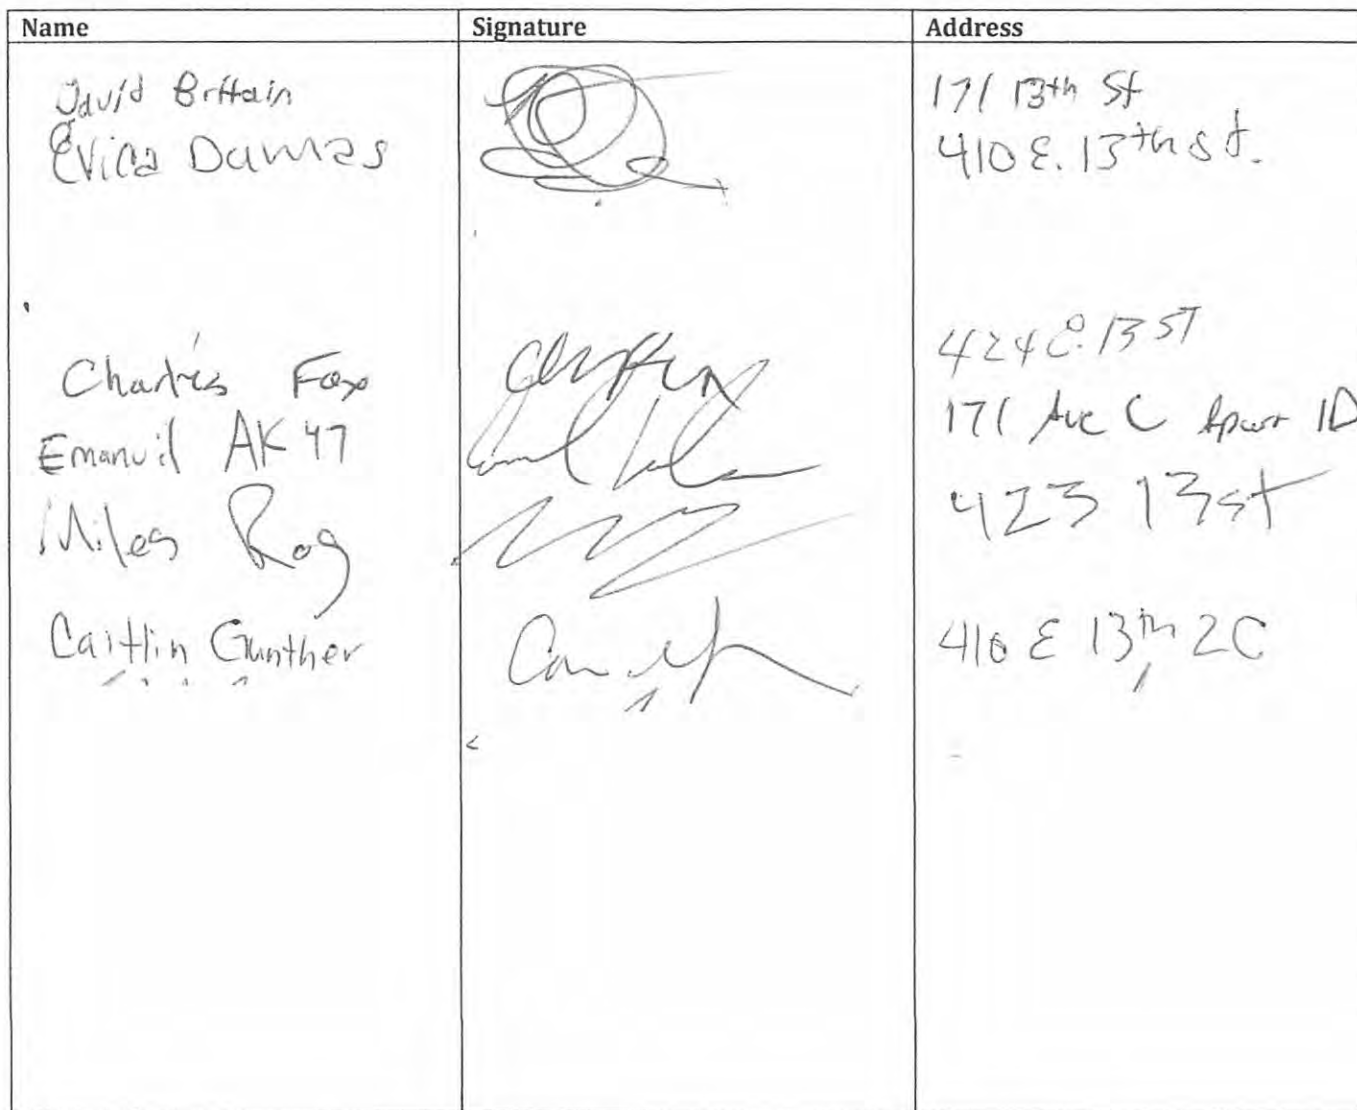 Name Signature Address
David Brittain 171 13th St
Erica Dumas 410 E. 13th st.
Charles Fox 424 E. 13 ST
Emanuil AK 47 171 Ave C Apart 1D
Miles Rog 423 13 st
Caitlin Gunther 410 E 13th 2C